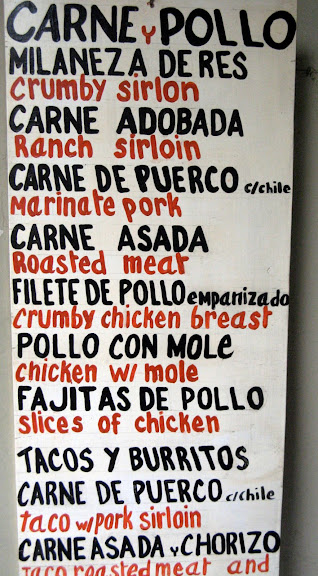 CARNE Y POLLO
MILANEZA DE RES
Crumby sirlon
CARNE ADOBADA
Ranch sirloin
CARNE DE PUERCO c/chile
Marinate pork
CARNE ASADA
Roasted meat
FILETE DE POLLO empanizado
Crumby chicken breast
POLLO CON MOLE
chicken w/ mole
FAJITAS DE POLLO
slices of chicken
TACOS Y BURRITOS
CARNE DE PUERCO c/chile
taco w/pork sirloin
CARNE ASADA y CHORIZO
Taco roasted meat and